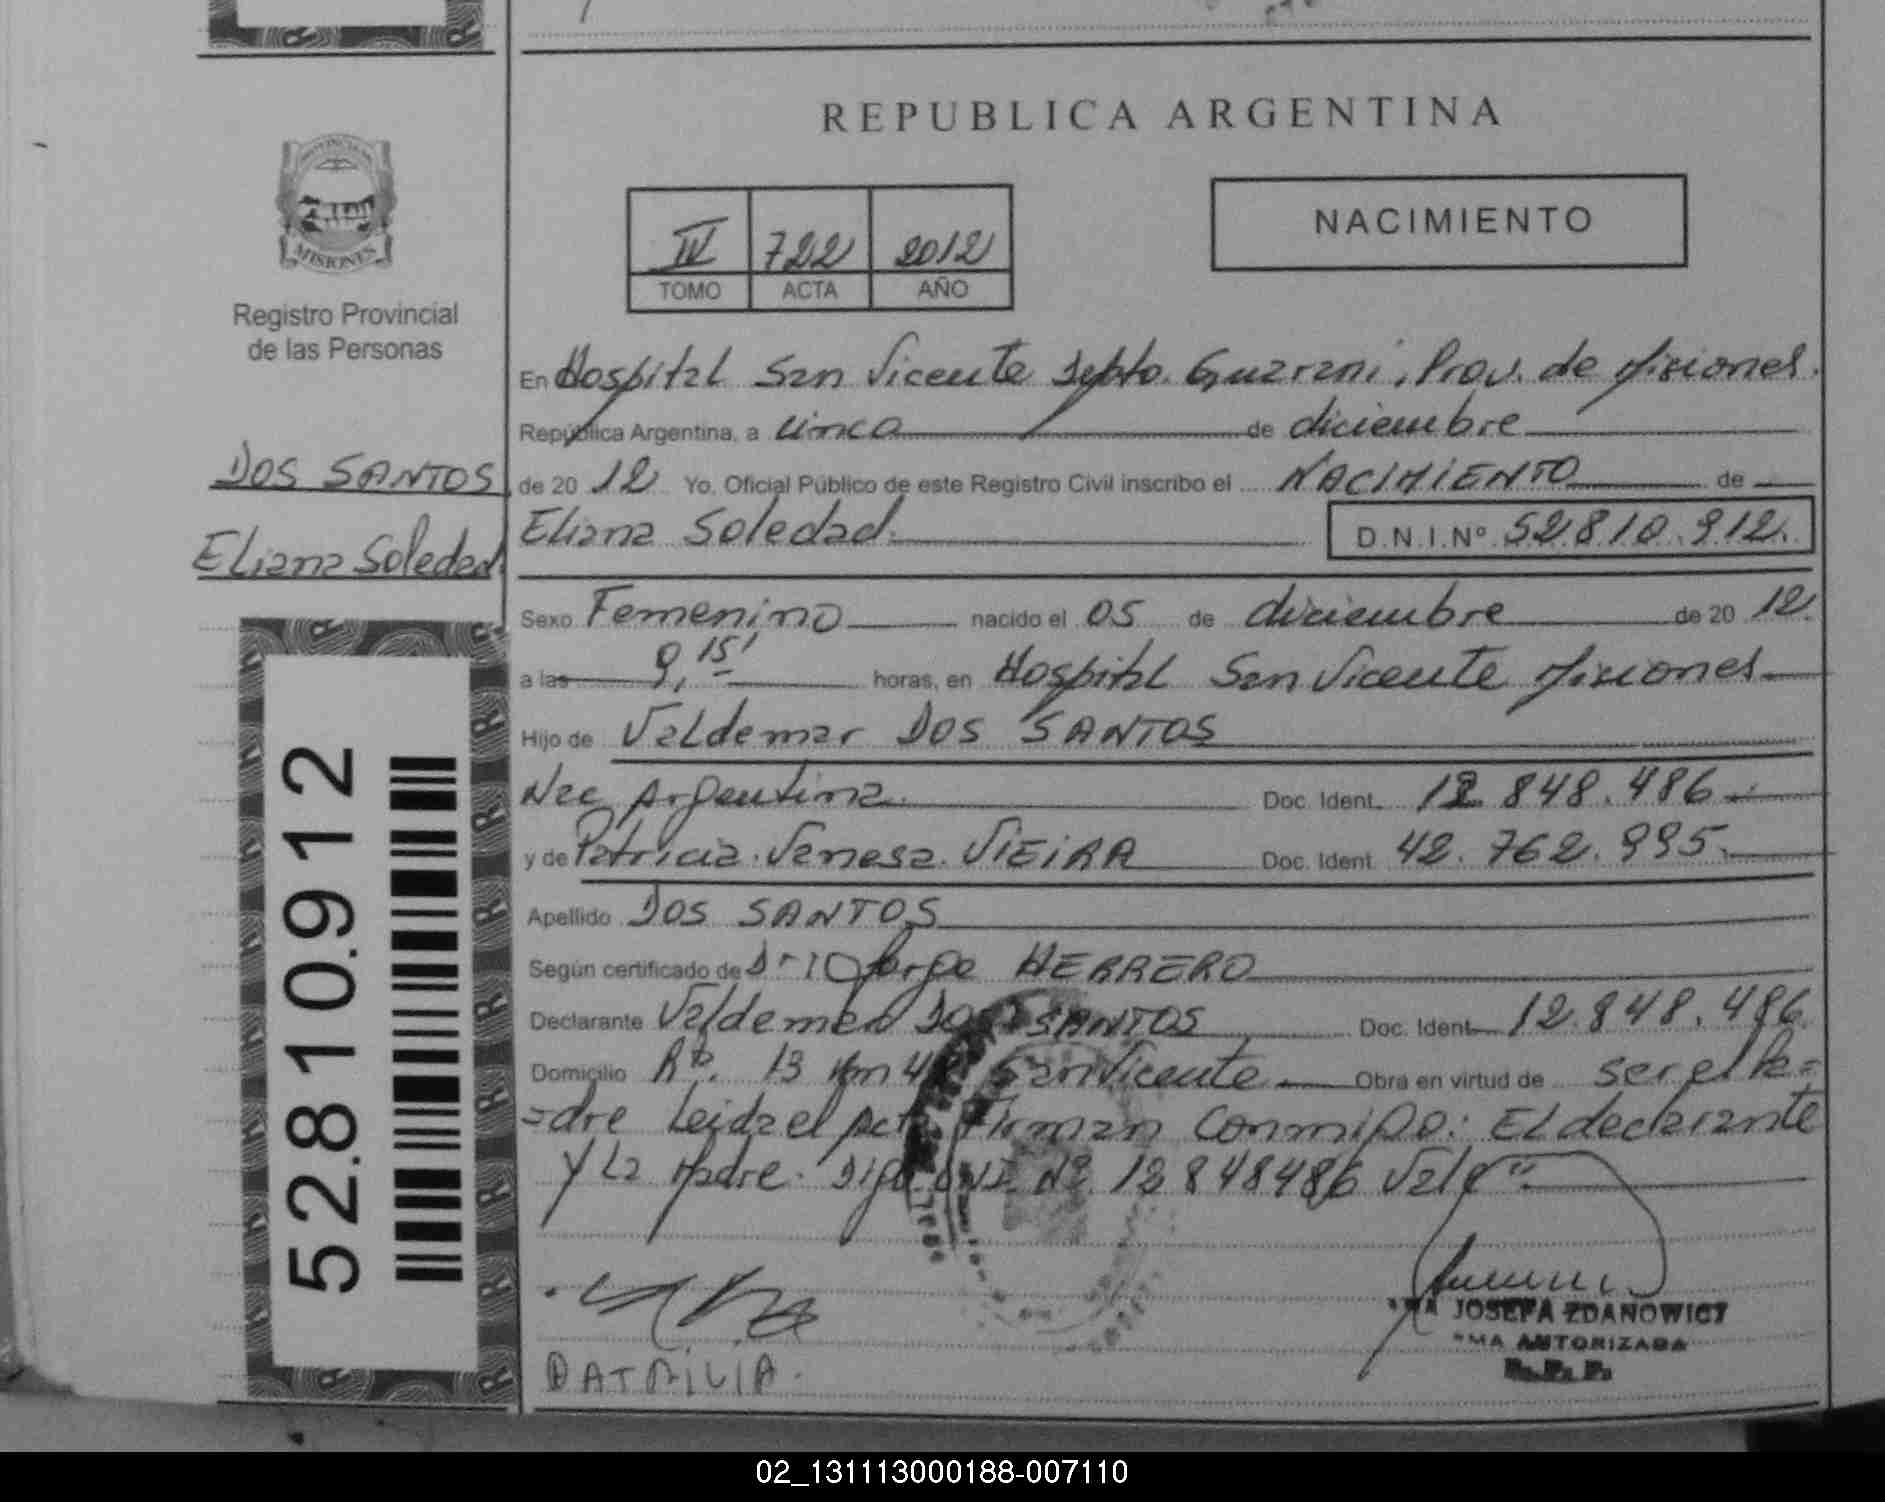 REPUBLICA ARGENTINA
NACIMIENTO
IV 722 2012
TOMO ACTA AÑO
MISIONES
Registro Provincial
de las Personas
En Hospital San Vicente Depto. Guarani, Prov. de Misiones.
República Argentina, a cinco de diciembre
DOS SANTOS
de 20 12 Yo, Oficial Público de este Registro Civil inscribo el NACIMIENTO de
Eliana Soledad
Eliana Soledad. D.N.I.Nº 52.810.912.
Sexo Femenino nacido el 05 de diciembre de 20 12.
a las 9,15' horas, en Hospital San Vicente Misiones
Hijo de Valdemar DOS SANTOS
Nac Argentina Doc. Ident. 12.848.486
y de Patricia Vanesa VIEIRA Doc. Ident. 42.762.995.
Apellido DOS SANTOS
Según certificado de Jorge HERRERO
Declarante Valdemar DOS SANTOS Doc. Ident. 12.848.486
Domicilio 13 Km San Vicente Obra en virtud de ser el Pa=
=dre Leida el acta Firman Conmigo: El declarante
y La Madre. Digo DNI Nº 12848486 Vale".
52.810.912
JOSEFA ZDANOWICZ
AUTORIZADA
R.P.P.
02_131113000188-007110